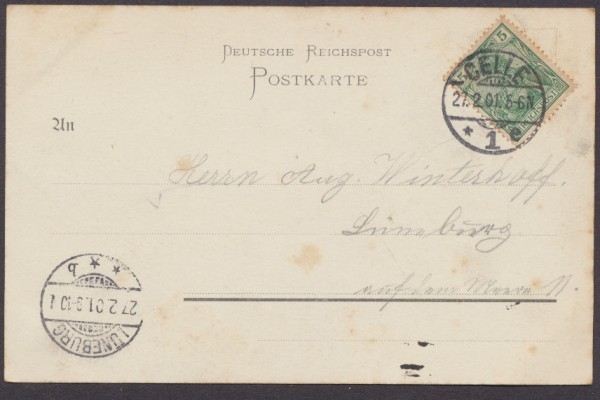 DEUTSCHE REICHSPOST
POSTKARTE
5
CELLE
27.2.01. 5-6N
* 1 e
An
Herrn Aug. Winterhoff.
Lüneburg
auf dem Meere 11.
* * b
27.2.01.9-10
LÜNEBURG